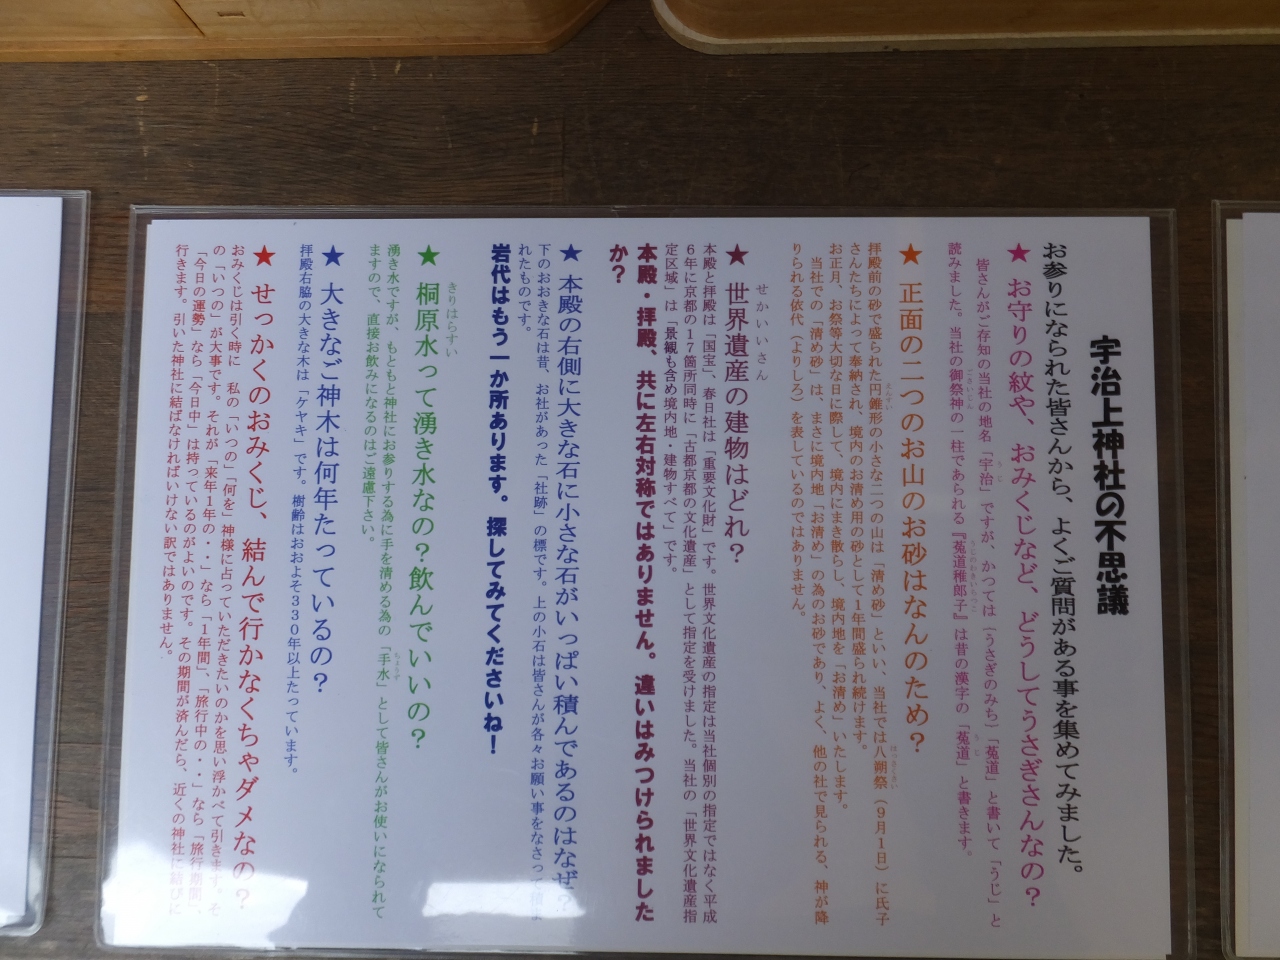 宇治上神社の不思議
お参りになられた皆さんから、よくご質問がある事を集めてみました。
★ お守りの紋や、おみくじなど、どうしてうさぎさんなの？
皆さんがご存知の当社の地名「宇治」ですが、かつては（うさぎのみち）「菟道」と書いて「うじ」と
読みました。当社の御祭神の一柱であられる『菟道稚郎子』は昔の漢字の「菟道」と書きます。
★ 正面の二つのお山のお砂はなんのため？
拝殿前の砂で盛られた円錐形の小さな二つの山は「清め砂」といい、当社では八朔祭（９月１日）に氏子
さんたちによって奉納され、境内のお清め用の砂として１年間盛られ続けます。
お正月、お祭等大切な日に際して、境内にまき散らし、境内地を「お清め」いたします。
当社での「清め砂」は、まさに境内地「お清め」の為のお砂であり、よく、他の社で見られる、神が降
りられる依代（よりしろ）を表しているのではありません。
★ 世界遺産の建物はどれ？
本殿と拝殿は「国宝」、春日社は「重要文化財」です。世界文化遺産の指定は当社個別の指定ではなく平成
６年に京都の１７箇所同時に「古都京都の文化遺産」として指定を受けました。当社の「世界文化遺産指
定区域」は「景観も含め境内地・建物すべて」です。
本殿・拝殿、共に左右対称ではありません。違いはみつけられました
か？
★ 本殿の右側に大きな石に小さな石がいっぱい積んであるのはなぜ？
下のおおきな石は昔、お社があった「社跡」の標です。上の小石は皆さんが各々お願い事をなさって積ま
れたものです。
岩代はもう一か所あります。探してみてくださいね！
★ 桐原水って湧き水なの？飲んでいいの？
湧き水ですが、もともと神社にお参りする為に手を清める為の「手水」として皆さんがお使いになられて
ますので、直接お飲みになるのはご遠慮下さい。
★ 大きなご神木は何年たっているの？
拝殿右脇の大きな木は「ケヤキ」です。樹齢はおおよそ３３０年以上たっています。
★ せっかくのおみくじ、結んで行かなくちゃダメなの？
おみくじは引く時に 私の「いつの」「何を」神様に占っていただきたいのかを思い浮かべて引きます。そ
の「いつの」が大事です。それが「来年１年の・・」なら「１年間」、「旅行中の・・」なら「旅行期間」、
「今日の運勢」なら「今日中」は持っているのがよいのです。その期間が済んだら、近くの神社に結びに
行きます。引いた神社に結ばなければいけない訳ではありません。